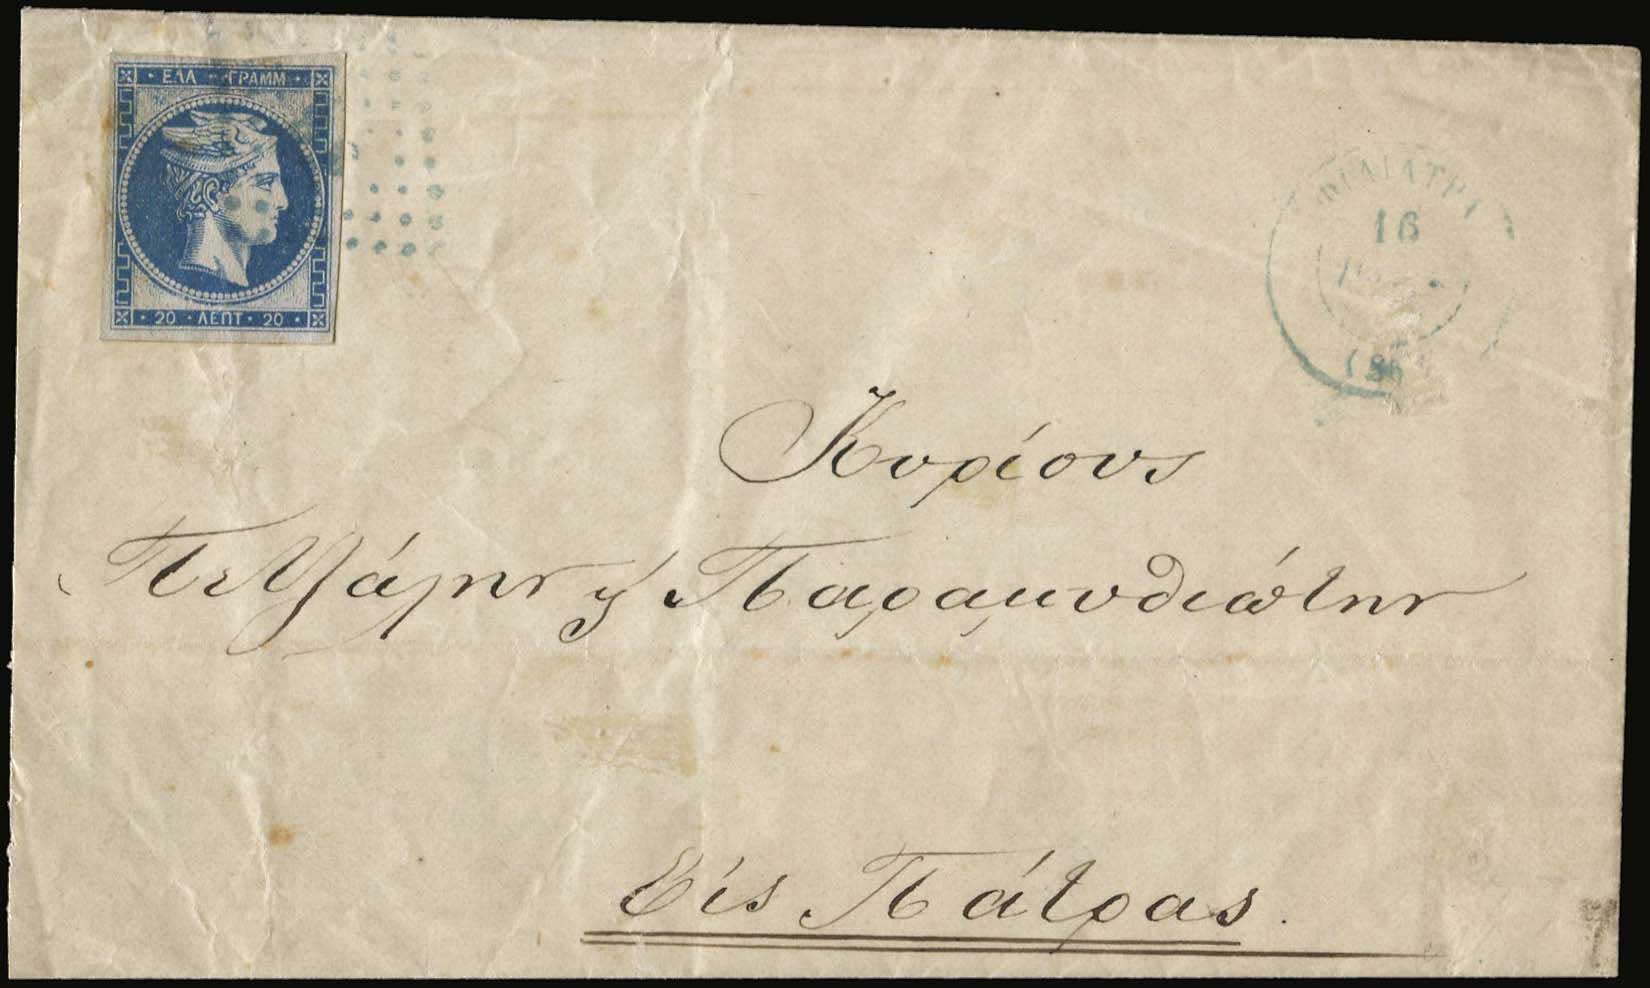 ΕΛΛ · ΓΡΑΜΜ ·
· 20 · ΛΕΠΤ · 20 ·
16
Κυρίους
Πετζάλην ϗ Παραμυθιώτην
Εἰς Πάτρας.